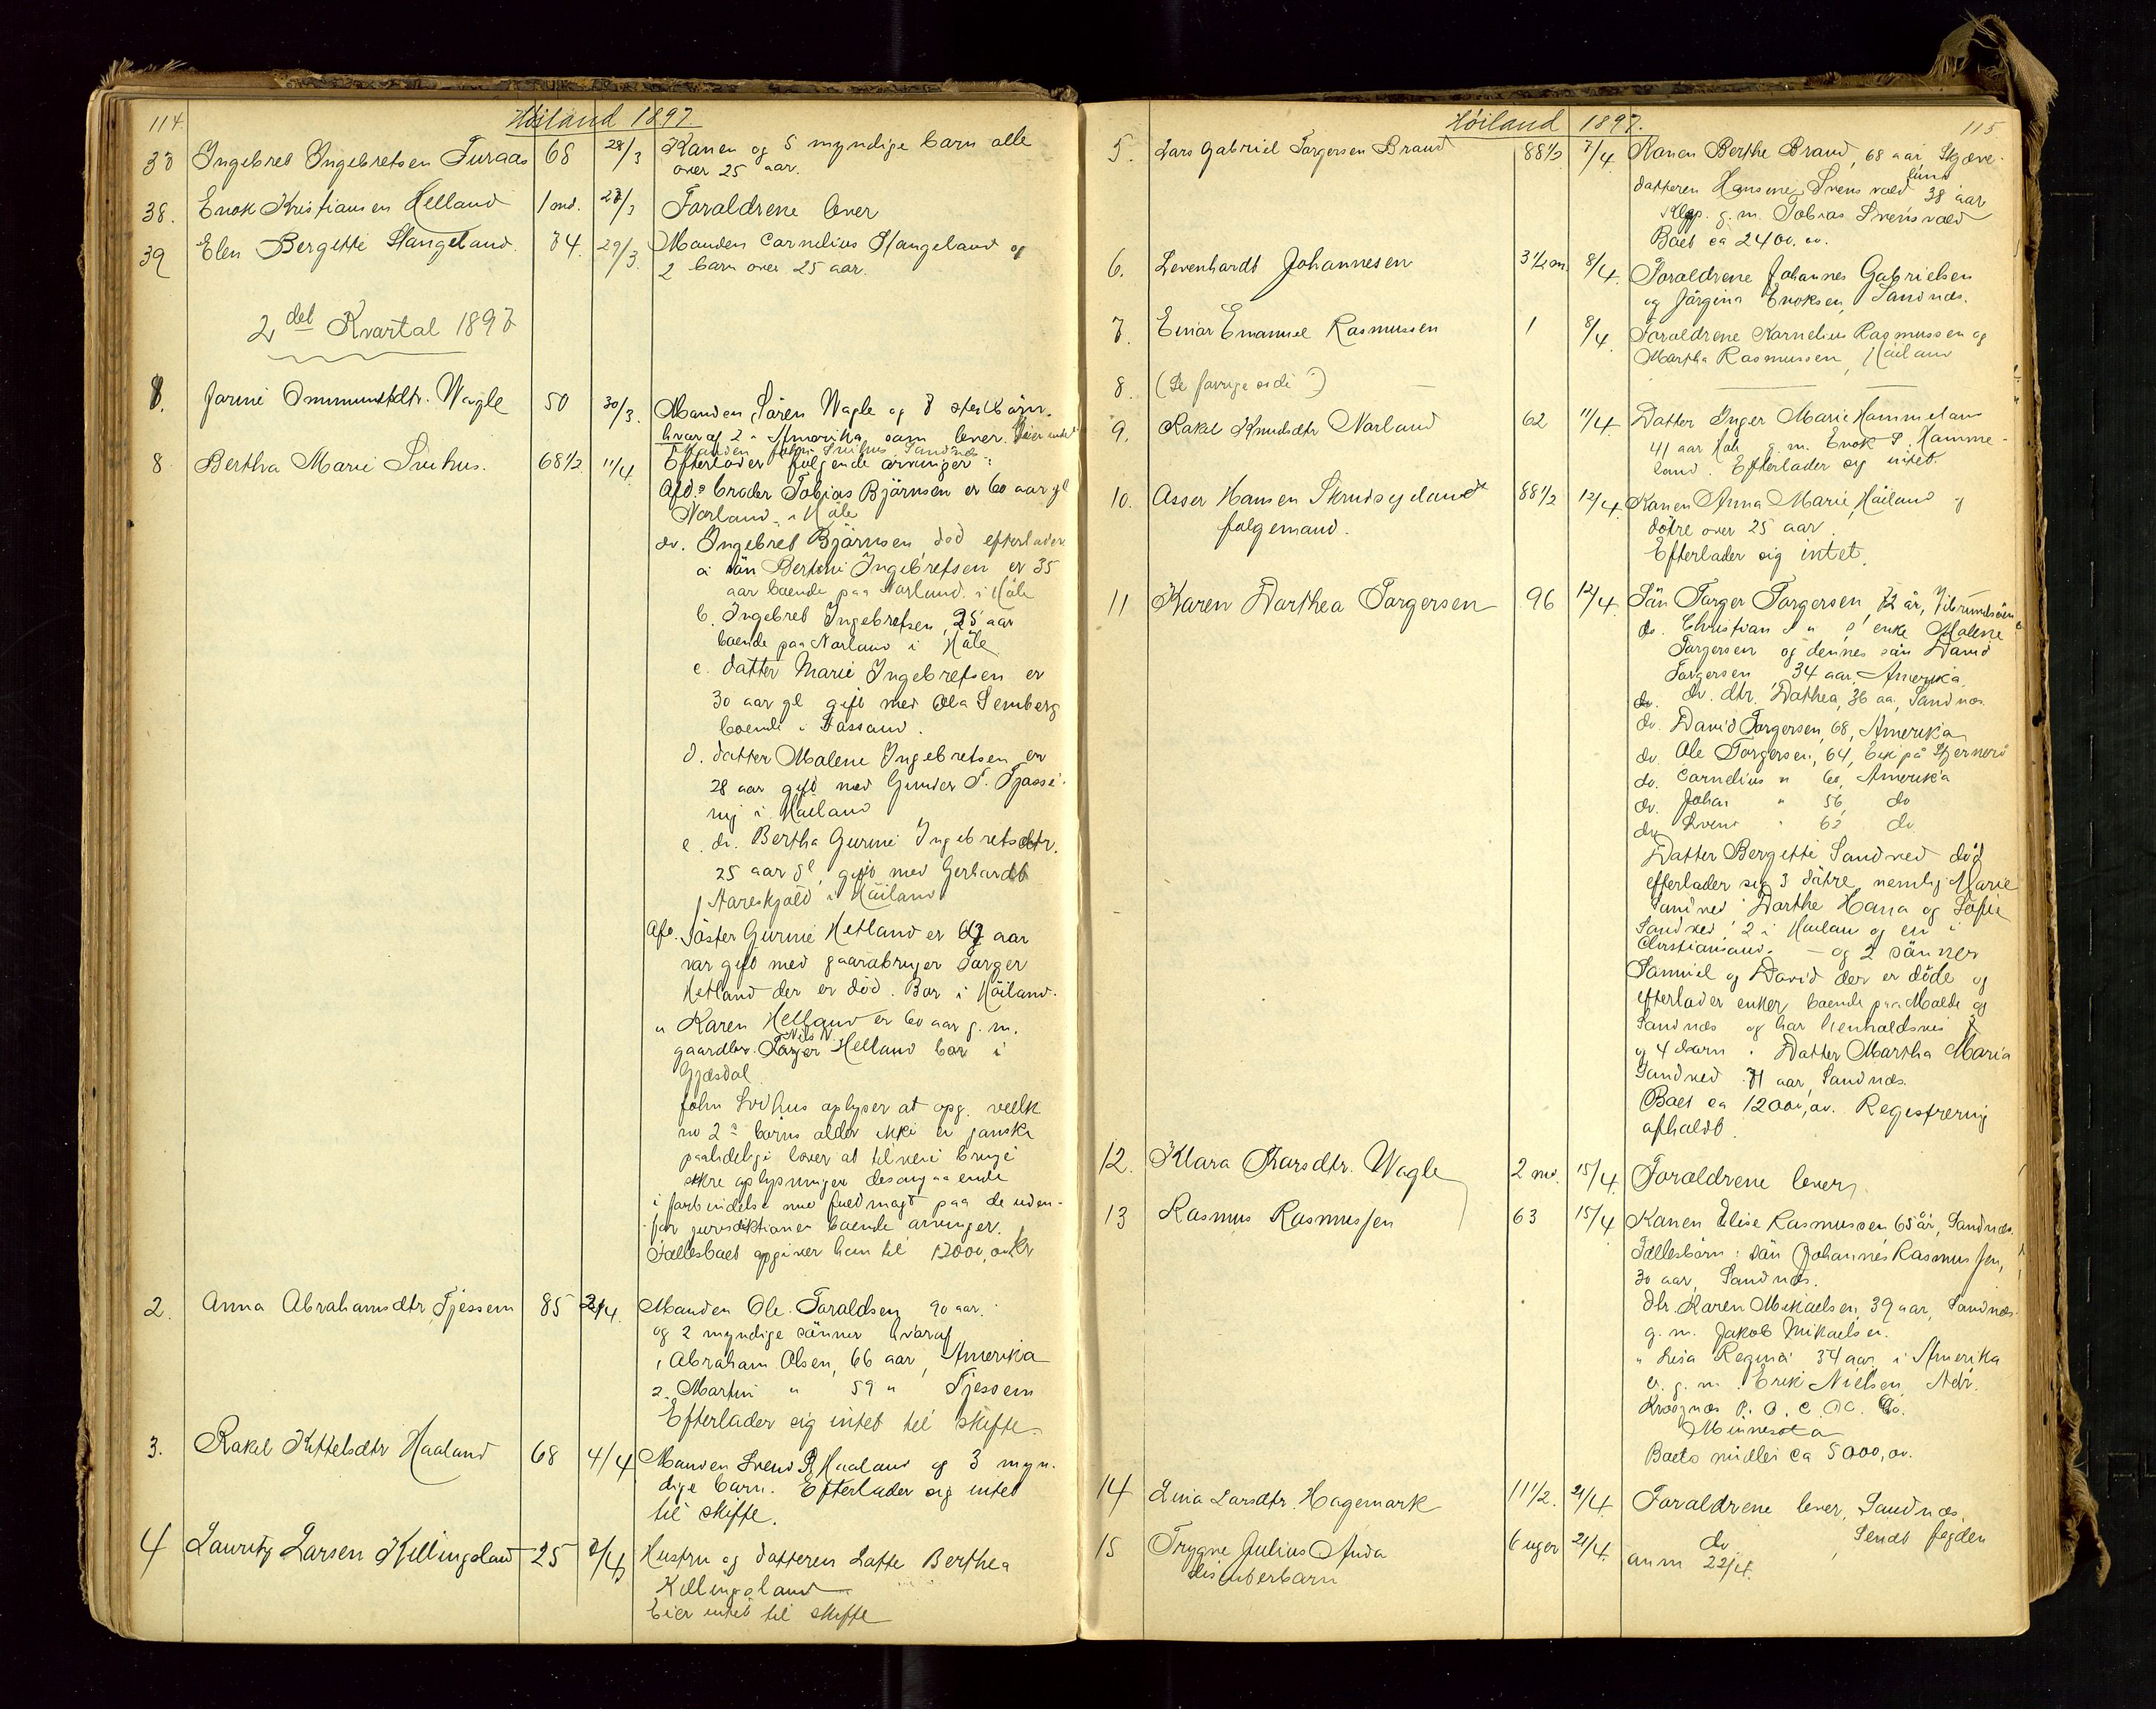 114. Höiland 1897.
Ingebret Ingebretsen Furaas 68 28/3 Konen og 5 myndige barn alle
over 25 aar.
38. Enok Kristiansen Helland 1 md. Foraldrene lever
39 Elen Bergitte Stangeland. 74. 29/3. Manden Cornelius Stangeland og
2 barn over 25 aar.
2det Kvartal 1897
1. Jorine Ommundsdtr. Wagle 50 30/3. Manden Sören Wagle og
hvoraf 2 i Amerika som lever. Eier intet
Manden John Svihus Sandnes
8 Bertha Marie Svihus. 68 1/2 11/4. Efterlader følgende arvinger:
Afd.s broder Tobias Björnsen er 60 aar gl
Norland i Häle
do. Ingebret Björnsen död efterlader
a. sän Bertine Ingebretsen er 35
aar boende paa Norland i Häle
b. Ingebret Ingebretsen, 25 aar
boende paa Norland i Häle
c. datter Marie Ingebretsen er
30 aar gl gift med Ola Semberg
boende i Fossand.
d. datter Malene Ingebretsen er
28 aar gift med Gunder T.
i Häiland
e. do. Bertha Gurine Ingebretsdtr.
25 aar gl, gift med Gerhardt
Noreskjold i Häiland
Afd. Söster Gurine Hetland er 67 aar
var gift med gaardbruger Torger
Hetland der er död. Bor i Häiland.
" Karen Helland er 60 aar g. m.
Nils N.
gaardbr. Torger Helland bor i
Gjesdal
John Svihus oplyser at opg. vedk
no 2s barns alder ikke er ganske
paalidelige lover at tilveie bringe
sikre oplysninger desangaaende
i forbindelse med fuldmagt paa de uden-
for jurisdiktionen boende arvinger.
Fællesboet opgiver han til 12000,00 kr
2. Anna Abrahamsdtr Tjessem 85 2/4. Manden Ole Toraldsen 90 aar.
og 2 myndige sänner hvoraf
1 Abraham Olsen, 66 aar, Amerika
2. Martin " 59 " Tjessem
Efterlader sig intet til skifte
3. Rakel Kittelsdtr Haaland 68 4/4 Manden Svend R Haaland og 3 myn-
dige barn. Efterlader sig intet
til skifte.
4 Lauritz Larsen Killingsland 25 7/4 Hustru og datteren Lotte Berthea
Killingsland
Eier intet til skifte
Höiland 1897. 115
5. Lars Gabriel Torgersen Braud 88 1/2 7/4. Konen Berthe Braud, 68 aar
datteren Hansine Svensvold 38 aar
g. m. Tobias Svensvold
Boet ca 2400.00.
6. Levenhardt Johannesen 3 1/2 m. 8/4. Foraldrene Johannes Gabrielsen
og Jörgine Enoksen, Sandnæs.
7. Einar Emanuel Rasmussen 1 8/4. Foraldrene Kornelius Rasmussen og
Martha Rasmussen, Häiland
8. (Se forrige side)
9. Rakel Knudsdtr Norland 62 11/4 Datter Inger Marie Hammeland
41 aar Häle g. m. Enok P. Hamme-
land. Efterlader sig intet.
10. Asser Hansen Skrudsyland 88 1/2 12/4. Konen Anna Marie, Häiland og
folgemand. dötre over 25 aar.
Efterlader sig intet.
11 Karen Dorthea Torgersen 96 12/4. Sän Torger Torgersen, 72 år,
do. Christian enke Malene
Torgersen og dennes sän David
Torgersen, 34 aar, Amerika.
do. do. dtr. Dorthea, 36 aa, Sandnæs.
do. David Torgersen, 68, Amerika
do. Ole Torgersen, 64, Eik på Stjernerö
do. Cornelius " 60, Amerika
do. Johan " 56, do
do. Svend " 62 do
Datter Bergitte Sandved död
efterlader sig 3 dötre, nemlig Marie
Sandved Dorthe Hana og Sofie
Sandved, 2 i Häiland og en i
Christiansand. — og 2 sänner
Samuel og David der er döde og
efterlader enker boende paa Molde og
Sandnæs og har henholdsvis
og 4 barn. Datter Martha Maria
Sandved 71 aar, Sandnæs.
Boet ca 12000,00. Registrering
afholdt.
12. Klara Larsdtr. Wagle 2 md. 15/4. Foraldrene lever
13 Rasmus Rasmussen 63 15/4 Konen Elise Rasmussen 65 år, Sandnæs.
Fællesbörn: sän Johannes Rasmussen,
30 aar, Sandnæs.
dtr. Karen Mikaelsen, 39 aar, Sandnæs
g. m. Jakob Mikaelsen.
" Lisa Regina 34 aar, i Amerika
er. g. m. Erik Nielsen, Adr.
Krognæs P. O.
Minnesota
Boets midler ca 5000,00.
14 Lina Larsdtr. Hagemark 11 1/2. 21/4. Foraldrene lever, Sandnæs.
15 Trygve Julius Auda 6 uger 21/4. do, Sendt fogden
anm 22/4.